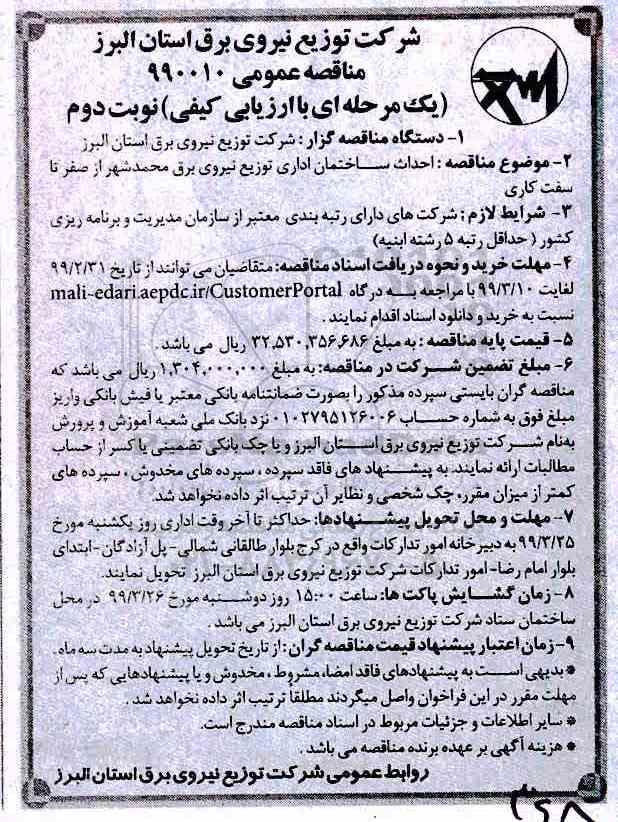 شرکت توزیع نیروی برق استان البرز
مناقصه عمومی ۹۹۰۰۱۰
(یک مرحله ای با ارزیابی کیفی) نوبت دوم
۱- دستگاه مناقصه گزار : شرکت توزیع نیروی برق استان البرز
۲- موضوع مناقصه : احداث ساختمان اداری توزیع نیروی برق محمدشهر از صفر تا
سفت کاری
۳- شرایط لازم : شرکت های دارای رتبه بندی معتبر از سازمان مدیریت و برنامه ریزی
کشور ( حداقل رتبه ۵ رشته ابنیه)
۴- مهلت خرید و نحوه دریافت اسناد مناقصه: متقاضیان می توانند از تاریخ ۹۹/۲/۳۱
لغایت ۹۹/۳/۱۰ با مراجعه به درگاه mali-edari.aepdc.ir/CustomerPortal
نسبت به خرید و دانلود اسناد اقدام نمایند .
۵- قیمت پایه مناقصه : به مبلغ ۳۲,۵۳۰,۳۵۶,۶۸۶ ریال می باشد .
۶- مبلغ تضمین شرکت در مناقصه: به مبلغ ۱,۳۰۴,۰۰۰,۰۰۰ ریال می باشد که
مناقصه گران بایستی سپرده مذکور را بصورت ضمانتنامه بانکی معتبر یا فیش بانکی واریز
مبلغ فوق به شماره حساب ۰۱۰۲۷۹۵۱۲۶۰۰۶ نزد بانک ملی شعبه آموزش و پرورش
به‌نام شرکت توزیع نیروی برق استان البرز و یا چک بانکی تضمینی یا کسر از حساب
مطالبات ارائه نمایند. به پیشنهاد های فاقد سپرده ، سپرده های مخدوش ، سپرده های
کمتر از میزان مقرر، چک شخصی و نظایر آن ترتیب اثر داده نخواهد شد.
۷- مهلت و محل تحویل پیشنهادها: حداکثر تا آخر وقت اداری روز یکشنبه مورخ
۹۹/۳/۲۵ به دبیرخانه امور تدارکات واقع در کرج بلوار طالقانی شمالی- پل آزادگان-ابتدای
بلوار امام رضا- امور تدارکات شرکت توزیع نیروی برق استان البرز تحویل نمایند.
۸- زمان گشایش پاکت ها: ساعت ۱۵:۰۰ روز دوشنبه مورخ ۹۹/۳/۲۶ در محل
ساختمان ستاد شرکت توزیع نیروی برق استان البرز می باشد .
۹- زمان اعتبار پیشنهاد قیمت مناقصه گران: از تاریخ تحویل پیشنهاد به مدت سه ماه .
* بدیهی است به پیشنهادهای فاقد امضا، مشروط ، مخدوش و یا پیشنهادهایی که پس از
مهلت مقرر در این فراخوان واصل میگردند مطلقاً ترتیب اثر داده نخواهد شد .
* سایر اطلاعات و جزئیات مربوط در اسناد مناقصه مندرج است.
* هزینه آگهی بر عهده برنده مناقصه می باشد .
روابط عمومی شرکت توزیع نیروی برق استان البرز